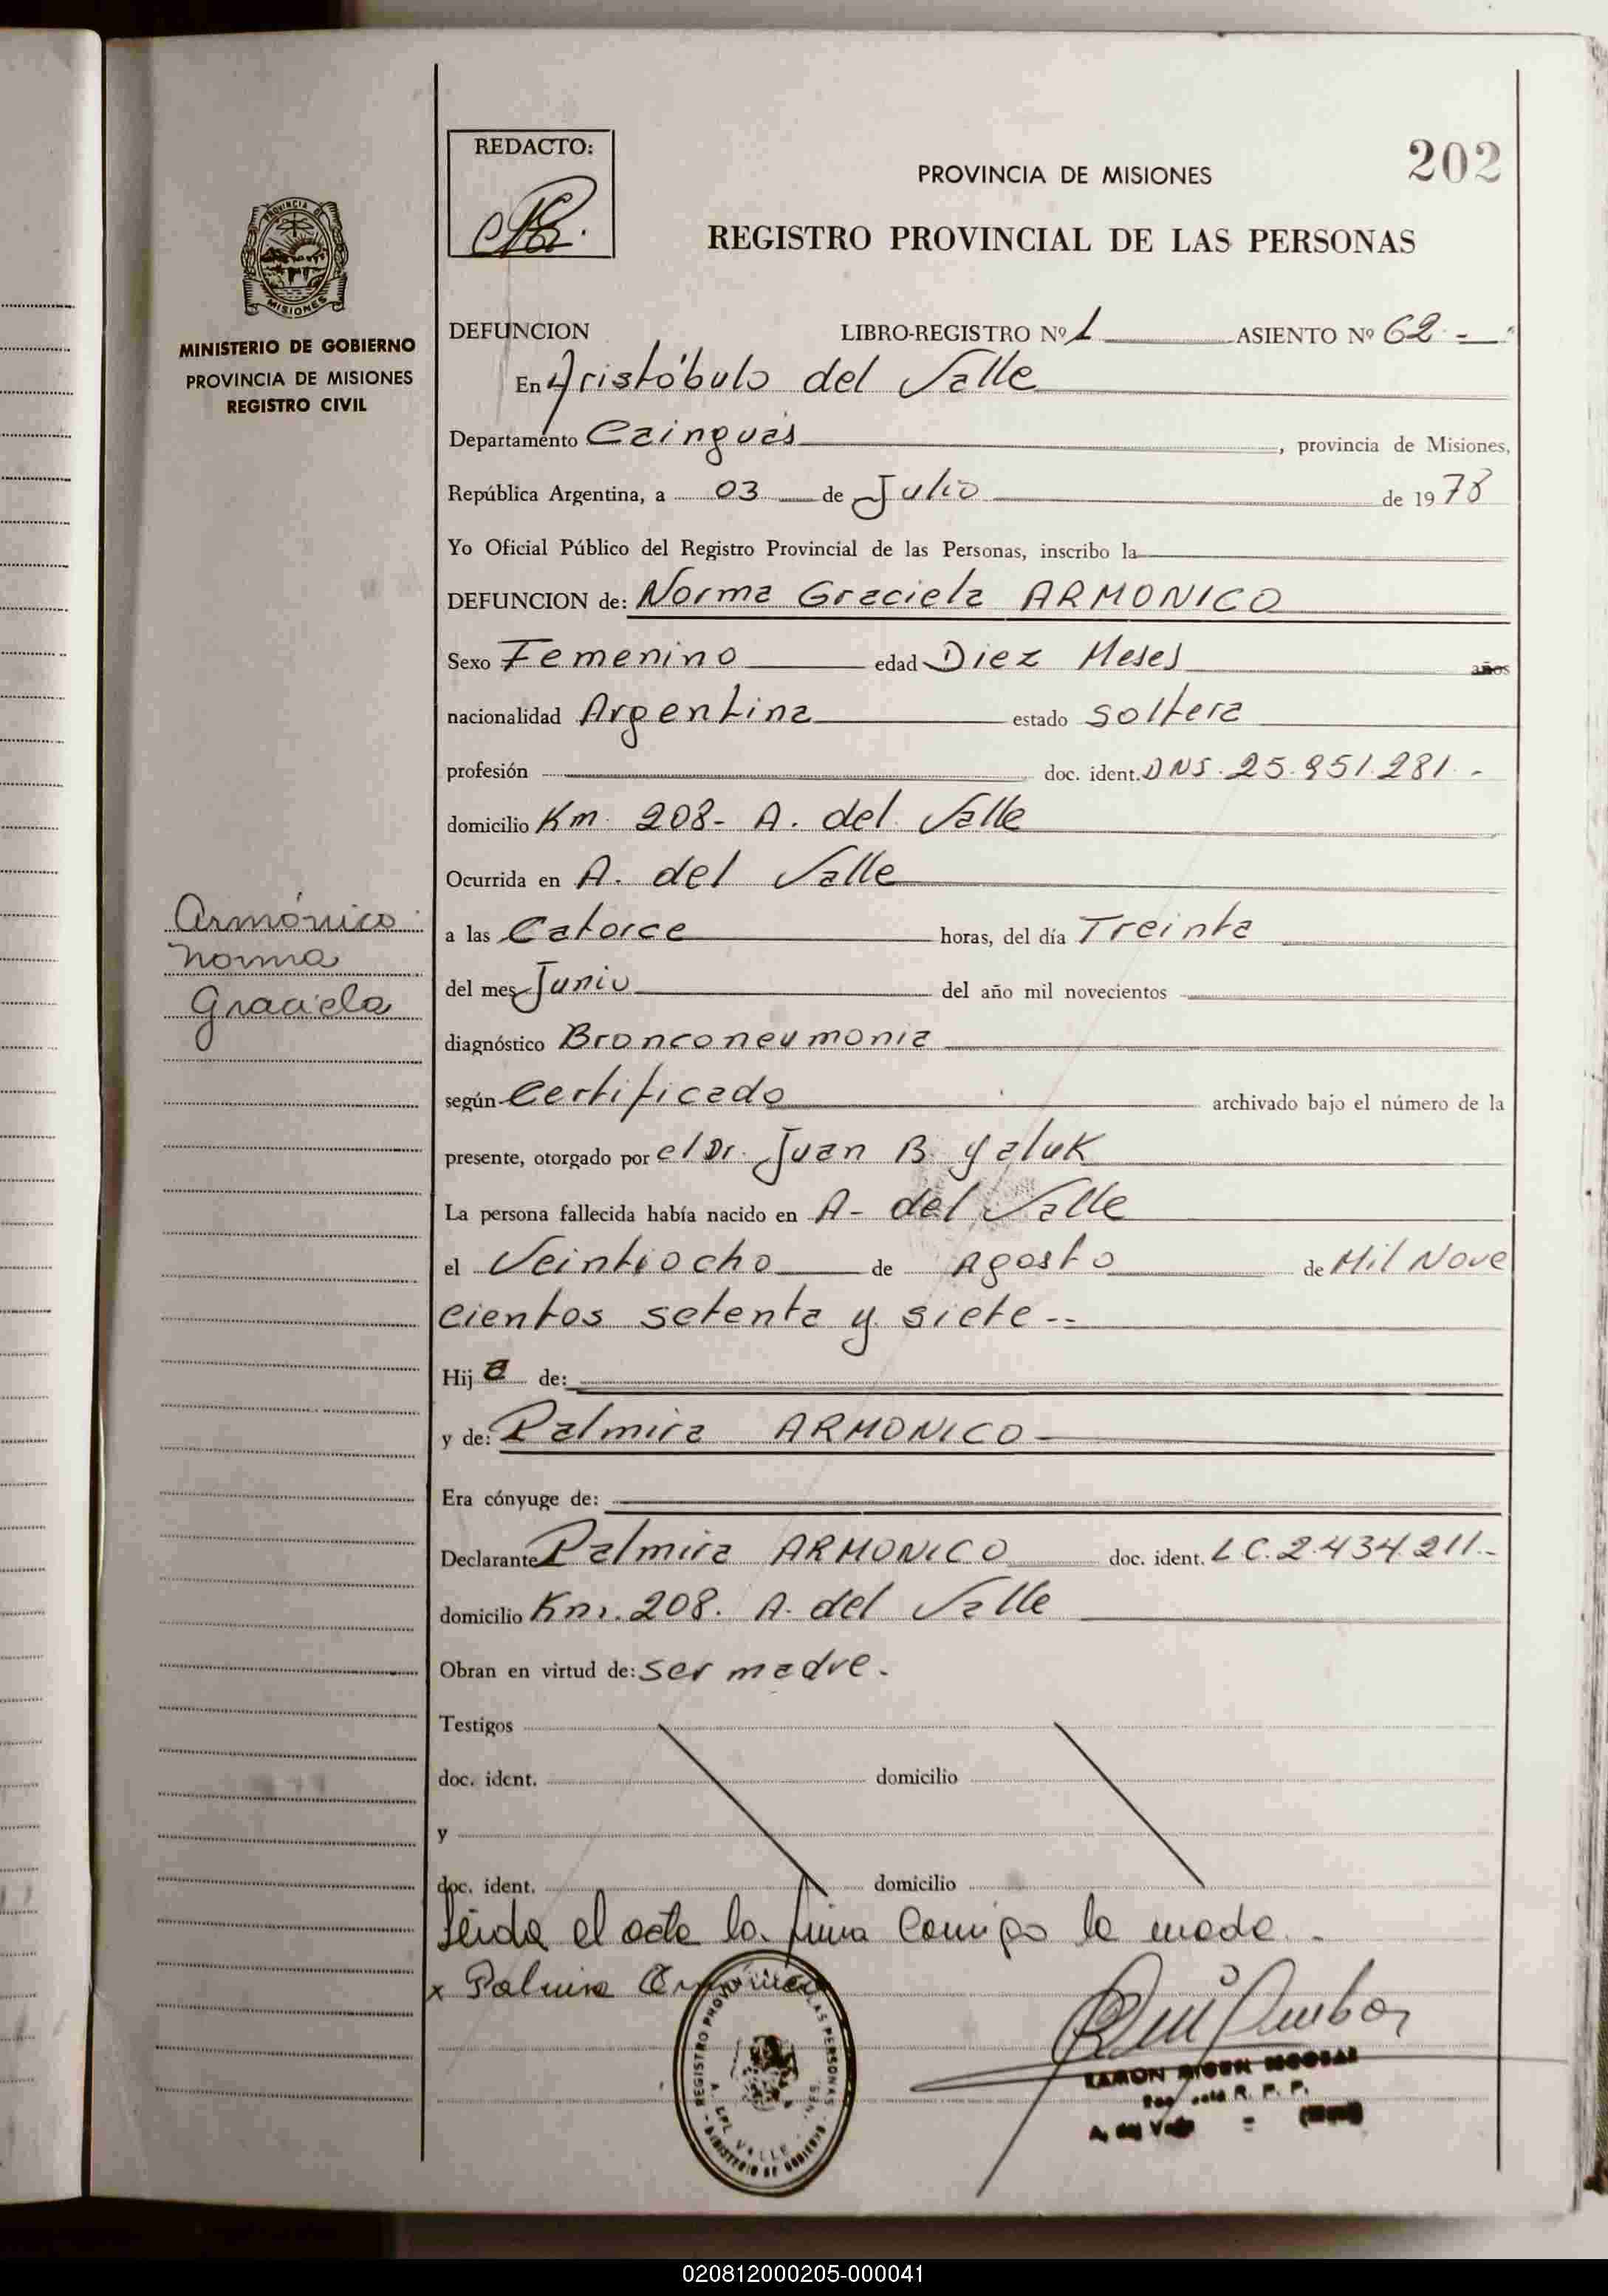 REDACTO:
202
PROVINCIA DE MISIONES
REGISTRO PROVINCIAL DE LAS PERSONAS
PROVINCIA DE
MISIONES
MINISTERIO DE GOBIERNO
PROVINCIA DE MISIONES
REGISTRO CIVIL
DEFUNCION LIBRO-REGISTRO Nº 1 ASIENTO Nº 62-
En Aristóbulo del Valle
Departamento Cainguas, provincia de Misiones,
República Argentina, a 03 de Julio de 1978
Yo Oficial Público del Registro Provincial de las Personas, inscribo la
DEFUNCION de: Norma Graciela ARMONICO
Sexo Femenino edad Diez Meses años
nacionalidad Argentina estado soltera
profesión doc. ident. DNI. 25.951.281.-
domicilio Km. 208- A. del Valle
Ocurrida en A. del Valle
Armónico
Norma
Graciela
a las Catorce horas, del día Treinta
del mes Junio del año mil novecientos
diagnóstico Bronconeumonia
según Certificado archivado bajo el número de la
presente, otorgado por el Dr. Juan B. Yaluk
La persona fallecida había nacido en A- del Valle
el Veintiocho de Agosto de Mil Nove
cientos setenta y siete--
Hija de:
y de: Palmira ARMONICO
Era cónyuge de:
Declarante Palmira ARMONICO doc. ident. L C. 2.434.211.-
domicilio Km. 208. A. del Valle
Obran en virtud de: ser madre.
Testigos
doc. ident. domicilio
y
doc. ident. domicilio
Leida el acta la firma Conmigo la madre.-
x Palmira
REGISTRO PROVINCIAL DE LAS PERSONAS
A. DEL VALLE
MINISTERIO DE GOBIERNO
RAMON
R. P. P.
A. del Valle
020812000205-000041